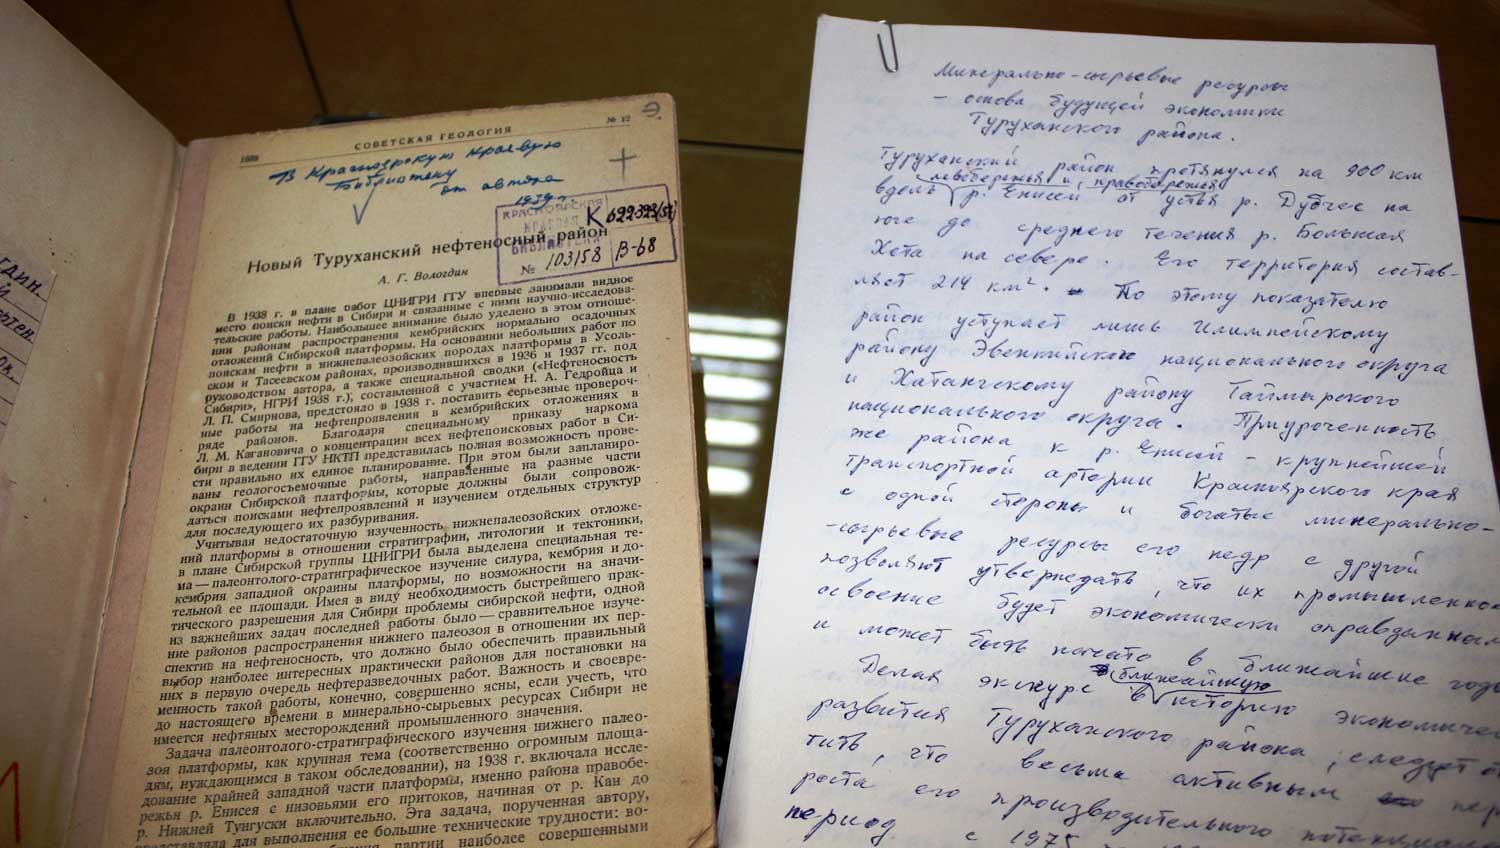 1938 СОВЕТСКАЯ ГЕОЛОГИЯ № 12
В Красноярскую Краевую
Библиотеку
от автора
1939 г.
КРАСНОЯРСКАЯ
КРАЕВАЯ
БИБЛИОТЕКА
№ 103158
В-68
Новый Туруханский нефтеносный район
А. Г. Вологдин
В 1938 г. в плане работ ЦНИГРИ ГГУ впервые занимали видное
место поиски нефти в Сибири и связанные с ними научно-исследова-
тельские работы. Наибольшее внимание было уделено в этом отноше-
нии районам распространения кембрийских нормально осадочных
отложений Сибирской платформы. На основании небольших работ по
поискам нефти в нижнепалеозойских породах платформы в Усоль-
ском и Тасеевском районах, производившихся в 1936 и 1937 гг. под
руководством автора, а также специальной сводки («Нефтеносность
Сибири», НГРИ 1938 г.), составленной с участием Н. А. Гедройца и
Л. П. Смирнова, предстояло в 1938 г. поставить серьезные провероч-
ные работы на нефтепроявления в кембрийских отложениях в
ряде районов. Благодаря специальному приказу наркома
Л. М. Кагановича о концентрации всех нефтепоисковых работ в Си-
бири в ведении ГГУ НКТП представилась полная возможность прове-
сти правильно их единое планирование. При этом были запланиро-
ваны геологосъемочные работы, направленные на разные части
окраин Сибирской платформы, которые должны были сопровож-
даться поисками нефтепроявлений и изучением отдельных структур
для последующего их разбуривания.
Учитывая недостаточную изученность нижнепалеозойских отложе-
ний платформы в отношении стратиграфии, литологии и тектоники,
в плане Сибирской группы ЦНИГРИ была выделена специальная те-
ма — палеонтолого-стратиграфическое изучение силура, кембрия и до-
кембрия западной окраины платформы, по возможности на значи-
тельной ее площади. Имея в виду необходимость быстрейшего прак-
тического разрешения для Сибири проблемы сибирской нефти, одной
из важнейших задач последней работы было — сравнительное изуче-
ние районов распространения нижнего палеозоя в отношении их пер-
спектив на нефтеносность, что должно было обеспечить правильный
выбор наиболее интересных практически районов для постановки на
них в первую очередь нефтеразведочных работ. Важность и своевре-
менность такой работы, конечно, совершенно ясны, если учесть, что
до настоящего времени в минерально-сырьевых ресурсах Сибири не
имеется нефтяных месторождений промышленного значения.
Задача палеонтолого-стратиграфического изучения нижнего палео-
зоя платформы, как крупная тема (соответственно огромным площа-
дям, нуждающимся в таком обследовании), на 1938 г. включала иссле-
дование крайней западной части платформы, именно района правобе-
режья р. Енисея с низовьями его притоков, начиная от р. Кан до
р. Нижней Тунгуски включительно. Эта задача, порученная автору,
представляла для выполнения ее большие технические трудности: во-
партии наиболее совершенными
Минерально-сырьевые ресурсы
– основа будущей экономики
Туруханского района.
Туруханский район протянулся на 900 км
левобережья и правобережья
вдоль р. Енисей от устья р. Дубчес на
юге до среднего течения р. Большая
Хета на севере. Его территория состав-
ляет 214 км². По этому показателю
район уступает лишь Илимпейскому
району Эвенкийского национального округа
и Хатангскому району Таймырского
национального округа. Приуроченность
же района к р. Енисей – крупнейшей
транспортной артории Красноярского края
с одной стороны и богатые минерально-
-сырьевые ресурсы его недр с другой
позволяют утверждать, что их промышленное
освоение будет экономически оправданным
и может быть начато в ближайшие годы
ближайшую
Делая экскурс в историю экономичес
развития Туруханского района, следует от
тить, что весьма активным
роста его производительного потенциала
период с 1975